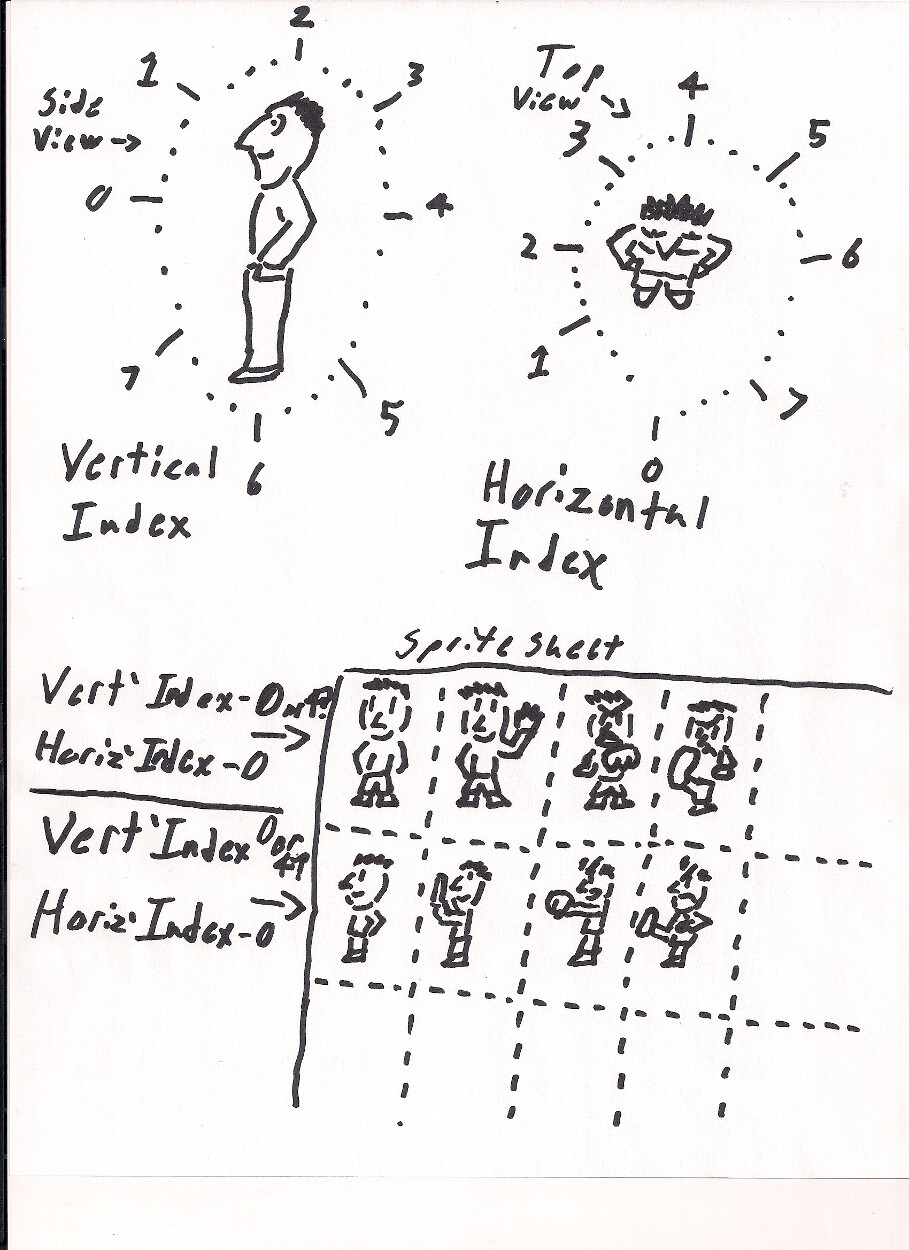 Side
View →
0
1
2
3
4
5
6
7
Vertical
Index
Top
View
0
1
2
3
4
5
6
7
Horizontal
Index
Sprite Sheet
Vert' Index-0 or 4?
Horiz' Index-0
Vert' Index 0 or 4?
Horiz' Index-0